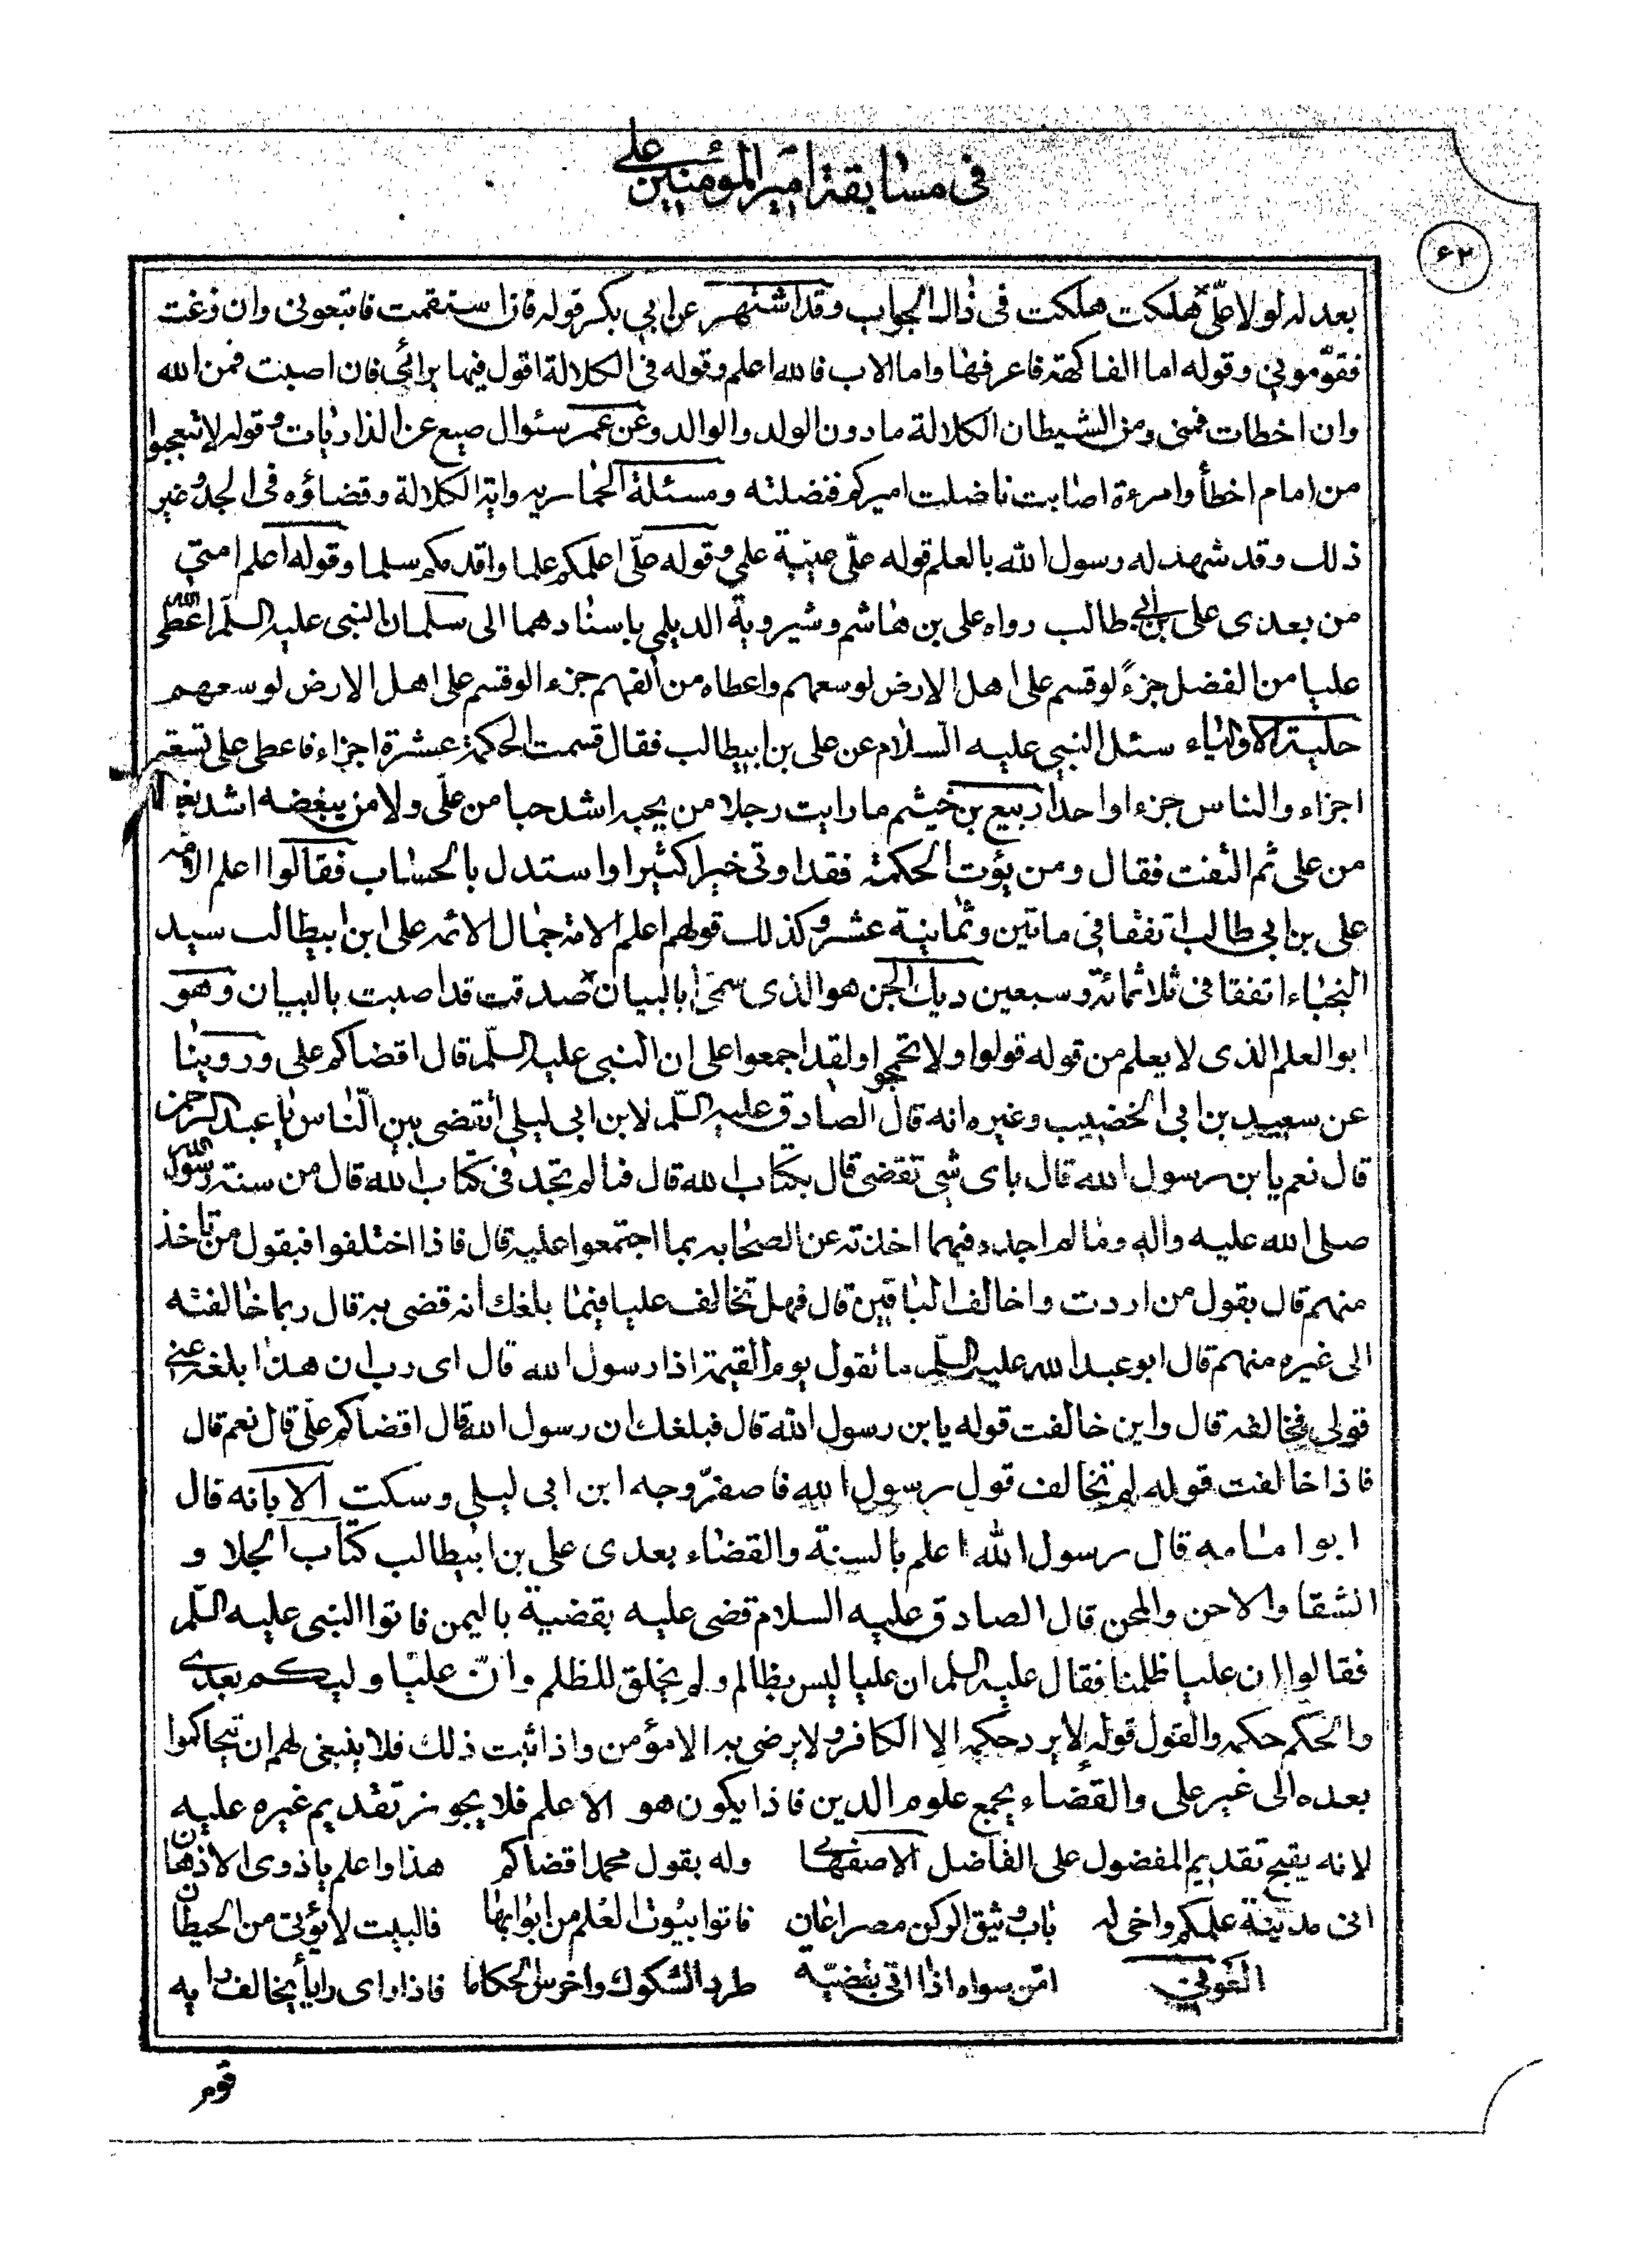 في مسابقة امير المؤمنين علي
۶۲
بعد له لولا علي هلكت هلكت في ذاك الجواب وقد اشتهر عن ابي بكر قوله فان استقمت فاتبعوني وان زغت
فقوّموني وقوله اما الفاكهة فاعرفها واما الاب فالله اعلم وقوله في الكلالة اقول فيها برائي فان اصبت فمن الله
وان اخطات فمنى ومن الشيطان الكلالة ما دون الولد والوالد وعن عمر سئوال صبيع عن الذاريات وقوله لا تتعجبوا
من امام اخطأ وامرءة اصابت ناضلت اميركم فنضلته ومسئلة الحمارية واية الكلالة وقضاؤه في الجد وغير
ذلك وقد شهد له رسول الله بالعلم قوله عليّ عيبة علمي وقوله عليّ اعلمكم علما واقدمكم سلما وقوله اعلم امتي
من بعدى على بن ابي طالب رواه على بن هاشم وشيروية الديلمي باسنادهما الى سلمان النبى عليه السلم اعطى الله
عليا من الفضل جزءً لو قسم على اهل الارض لوسعهم واعطاه من الفهم جزء لو قسم على اهل الارض لوسعهم
حلية الاولياء سئل النبي عليه السلام عن على بن ابيطالب فقال قسمت الحكمة عشرة اجزاء فاعطى على تسعة
اجزاء والناس جزءا واحدا ربيع بن خيثم ما رايت رجلا من يحبه اشد حبا من علّى ولا من يبغضه اشد بغضا
من على ثم التفت فقال ومن يؤت الحكمة فقد اوتى خيرا كثيرا واستدل بالحساب فقالوا اعلم الامة
على بن ابي طالب اتفقا في ماتين وثمانية عشر وكذلك قولهم اعلم الامة جمال الائمه على ابن ابيطالب سيد
النجباء اتفقا في ثلاثمائة وسبعين ديك الجن هو الذى سمى بالبيان صدقت قد اصبت بالبيان وهو
ابو العلم الذى لا يعلم من قوله قولوا ولا تحمجوا ولقد اجمعوا على ان النبى عليه السلم قال اقضاكم على وروينا
عن سعيد بن ابى الخضيب وغيره انه قال الصادق عليه السلم لابن ابى ليلى أتقضى بين الناس يا عبد الرحمن
قال نعم يا بن رسول الله قال باى شى تقضى قال بكتاب الله قال فما لم تجد فى كتاب الله قال من سنة رسول الله
صلى الله عليه واله وما لم اجده فيهما اخذته عن الصحابه بما اجتمعوا عليه قال فاذا اختلفوا فبقول من تاخذ
منهم قال بقول من اردت واخالف الباقين قال فهل تخالف عليا فيما بلغك انه قضى به قال ربما خالفته
الى غيره منهم قال ابو عبد الله عليه السلم ما تقول يوم القيمة اذا رسول الله قال اى رب ان هذا بلغه عنى
قولى فخالفه قال واين خالفت قوله يا بن رسول الله قال فبلغك ان رسول الله قال اقضاكم علي قال نعم قال
فاذا خالفت قوله لم تخالف قول رسول الله فاصفرّ وجه ابن ابى ليلى وسكت الابانه قال
ابو امامه قال رسول الله اعلم بالسنة والقضاء بعدى على بن ابيطالب كتاب الجلا و
الشقا والاحن والمحن قال الصادق عليه السلام قضى عليه بقضية باليمن فاتوا النبى عليه السلم
فقالوا ان عليا ظلمنا فقال عليه السلم ان عليا ليس بظالم ولم يخلق للظلم وانّ عليّا وليكم بعدى
والحكم حكمه والقول قوله لا يرد حكمه الا الكافر ولا يرضى به الا مؤمن واذا ثبت ذلك فلا ينبغى لهم ان يتحاكموا
بعده الى غير على والقضاء يجمع علوم الدين فاذا يكون هو الاعلم فلا يجوز تقديم غيره عليه
لانه يقبح تقديم المفضول على الفاضل الاصفهانى وله بقول محمد اقضاكم هذا واعلم يا ذوى الاذهان
انى مدينة علمكم واخى له باب وثيق الركن مصراعان فاتوا بيوت العلم من ابوابها فالبيت لا يؤتى من الحيطان
العونى امّن سواه اذا اتى بقضيّة طرد الشكوك واخرس الحكاما فاذا راى رايا يخالف رايه
قوم